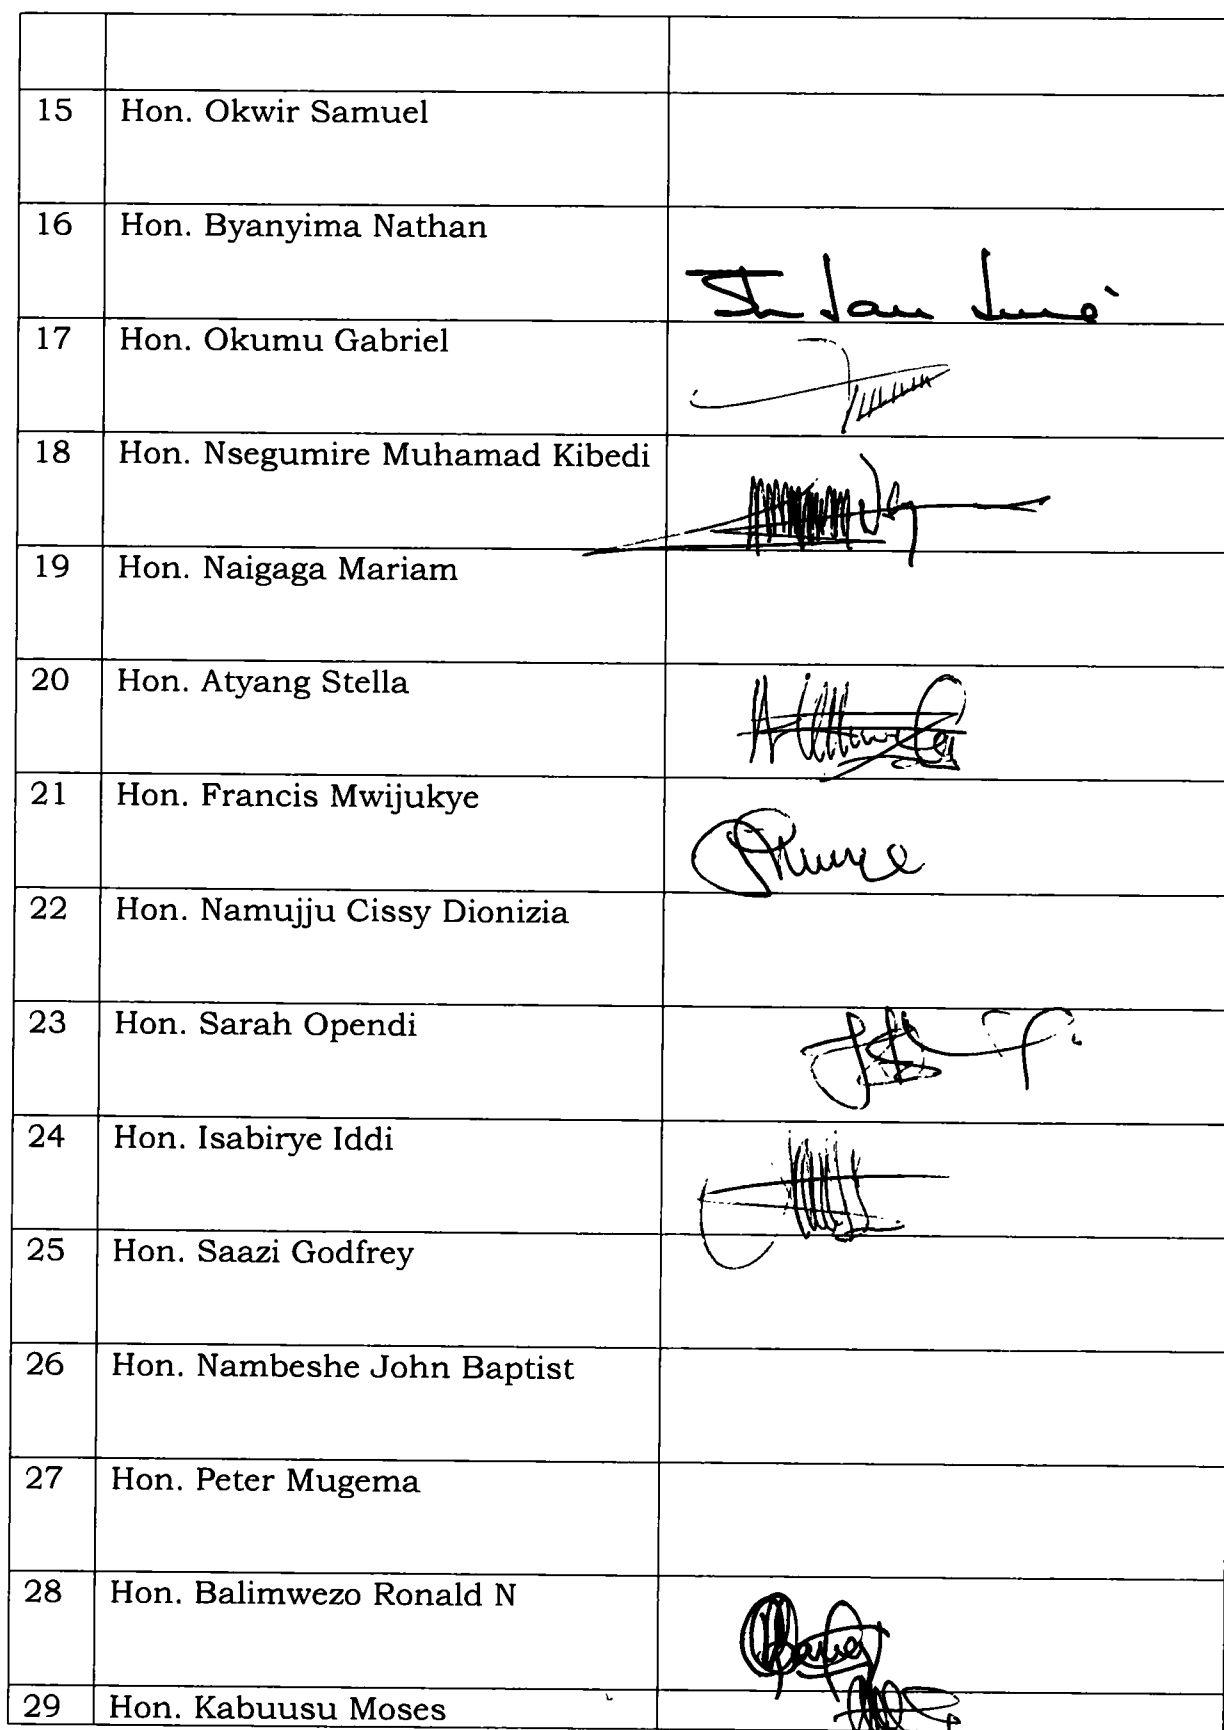 15 Hon. Okwir Samuel
16 Hon. Byanyima Nathan
17 Hon. Okumu Gabriel
18 Hon. Nsegumire Muhamad Kibedi
19 Hon. Naigaga Mariam
20 Hon. Atyang Stella
21 Hon. Francis Mwijukye
22 Hon. Namujju Cissy Dionizia
23 Hon. Sarah Opendi
24 Hon. Isabirye Iddi
25 Hon. Saazi Godfrey
26 Hon. Nambeshe John Baptist
27 Hon. Peter Mugema
28 Hon. Balimwezo Ronald N
29 Hon. Kabuusu Moses